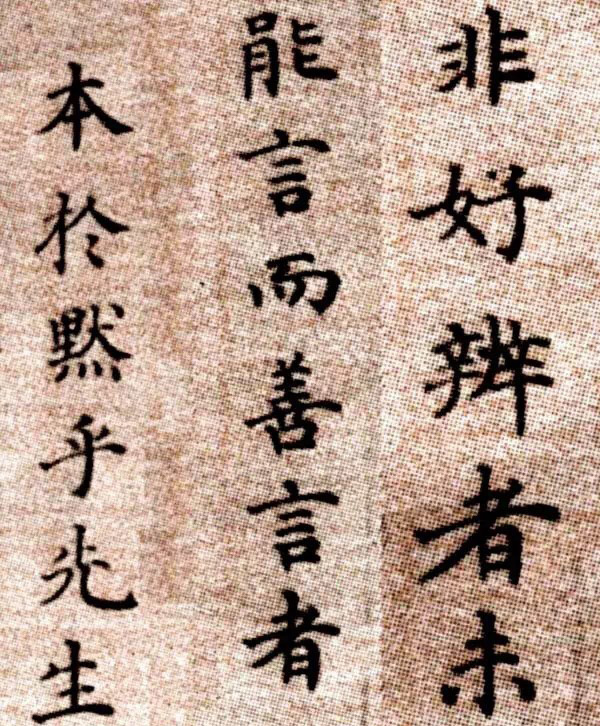 非好辨者未
能言而善言者
本於默乎先生